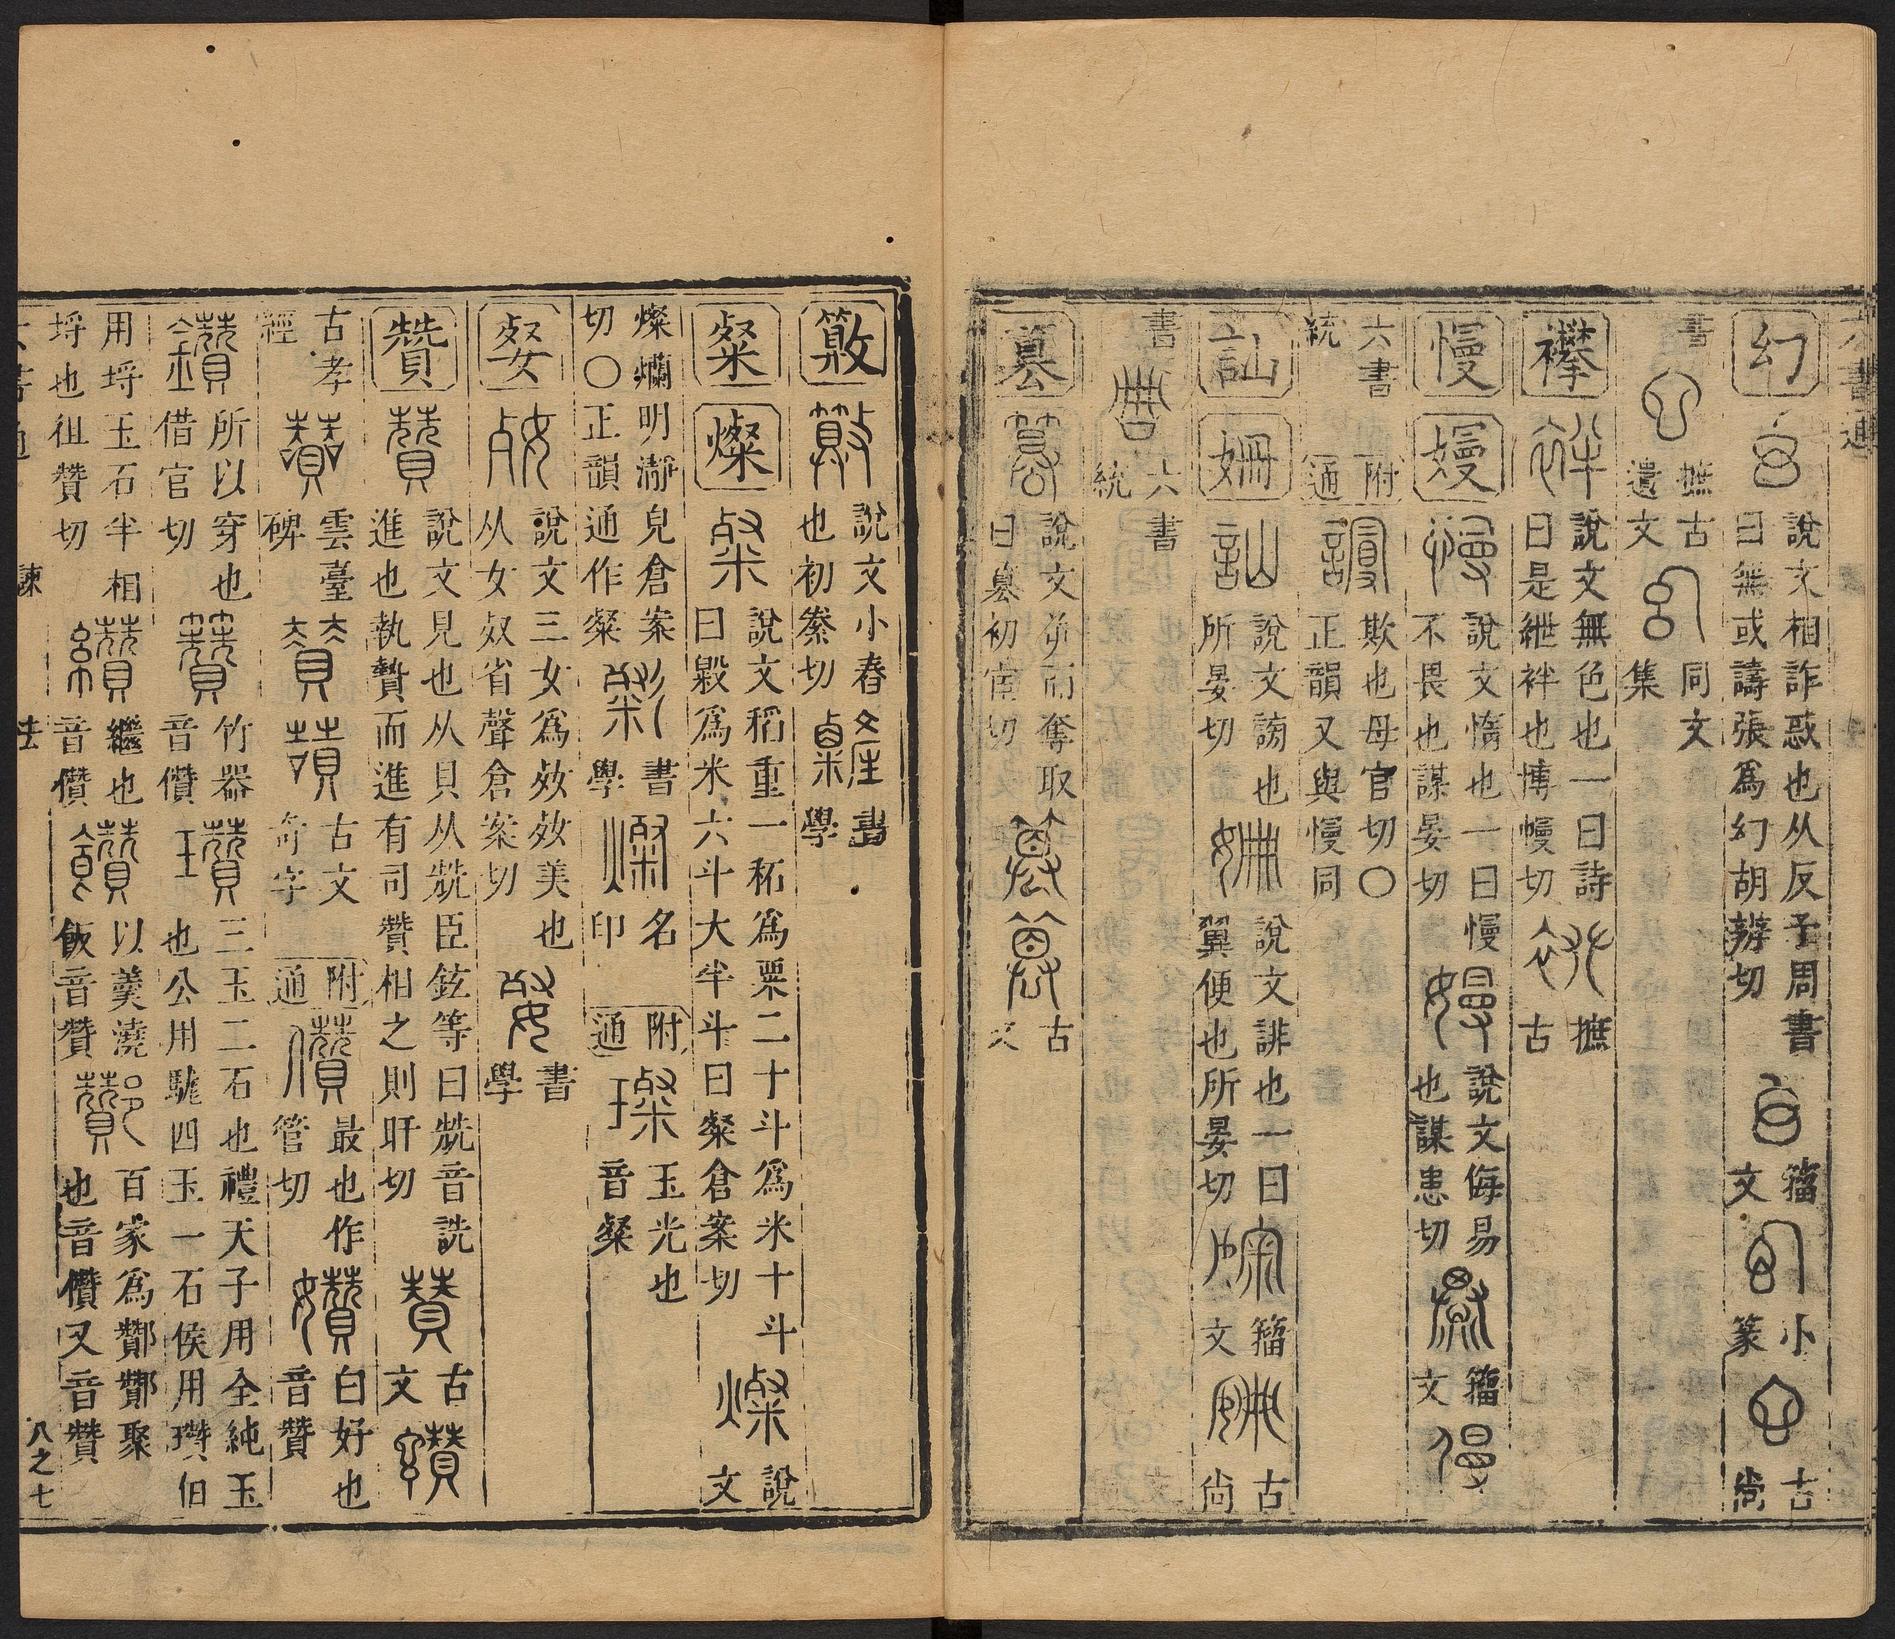 幻 說文相詐惑也从反予周書
曰無或譸張爲幻胡辨切 籀文 小篆 古尚
書 摭古遺文 同文集
襻 說文無色也一曰詩
曰是紲袢也博幔切 摭古
慢 嫚 說文惰也一曰慢
不畏也謀晏切 說文侮易
也謀患切 籀文
六書統 附通 欺也母官切〇
正韻又與慢同
訕 姍 說文謗也
所晏切 說文誹也一曰
翼便也所晏切 籀文 古尚
書 六書統
篡 說文屰而奪取
曰篡初宦切 古文
䉛 說文小舂
也初絭切 書學
粲 燦 說文稻重一䄷爲粟二十斗爲米十斗
曰毇爲米六斗大半斗曰粲倉案切 說文
燦爛明瀞皃倉案
切〇正韻通作粲 書學 名印 附通 玉光也
音粲
㛑 說文三女爲㛑㛑美也
从女𣦼省聲倉案切 書學
贊 說文見也从貝从兟臣鉉等曰兟音詵
進也執贄而進有司贊相之則旰切 古文
古孝經 雲臺碑 古文奇字 附通 最也作
管切 白好也
音贊
所以穿也
借官切 竹器
音儹 三玉二石也禮天子用全純玉
也公用駹四玉一石侯用瓚伯
用埒玉石半相
埒也徂贊切 繼也
音儹 以羹澆
飯音贊 百家爲酇酇聚
也音儹又音贊
六書通 諫 去 八之七